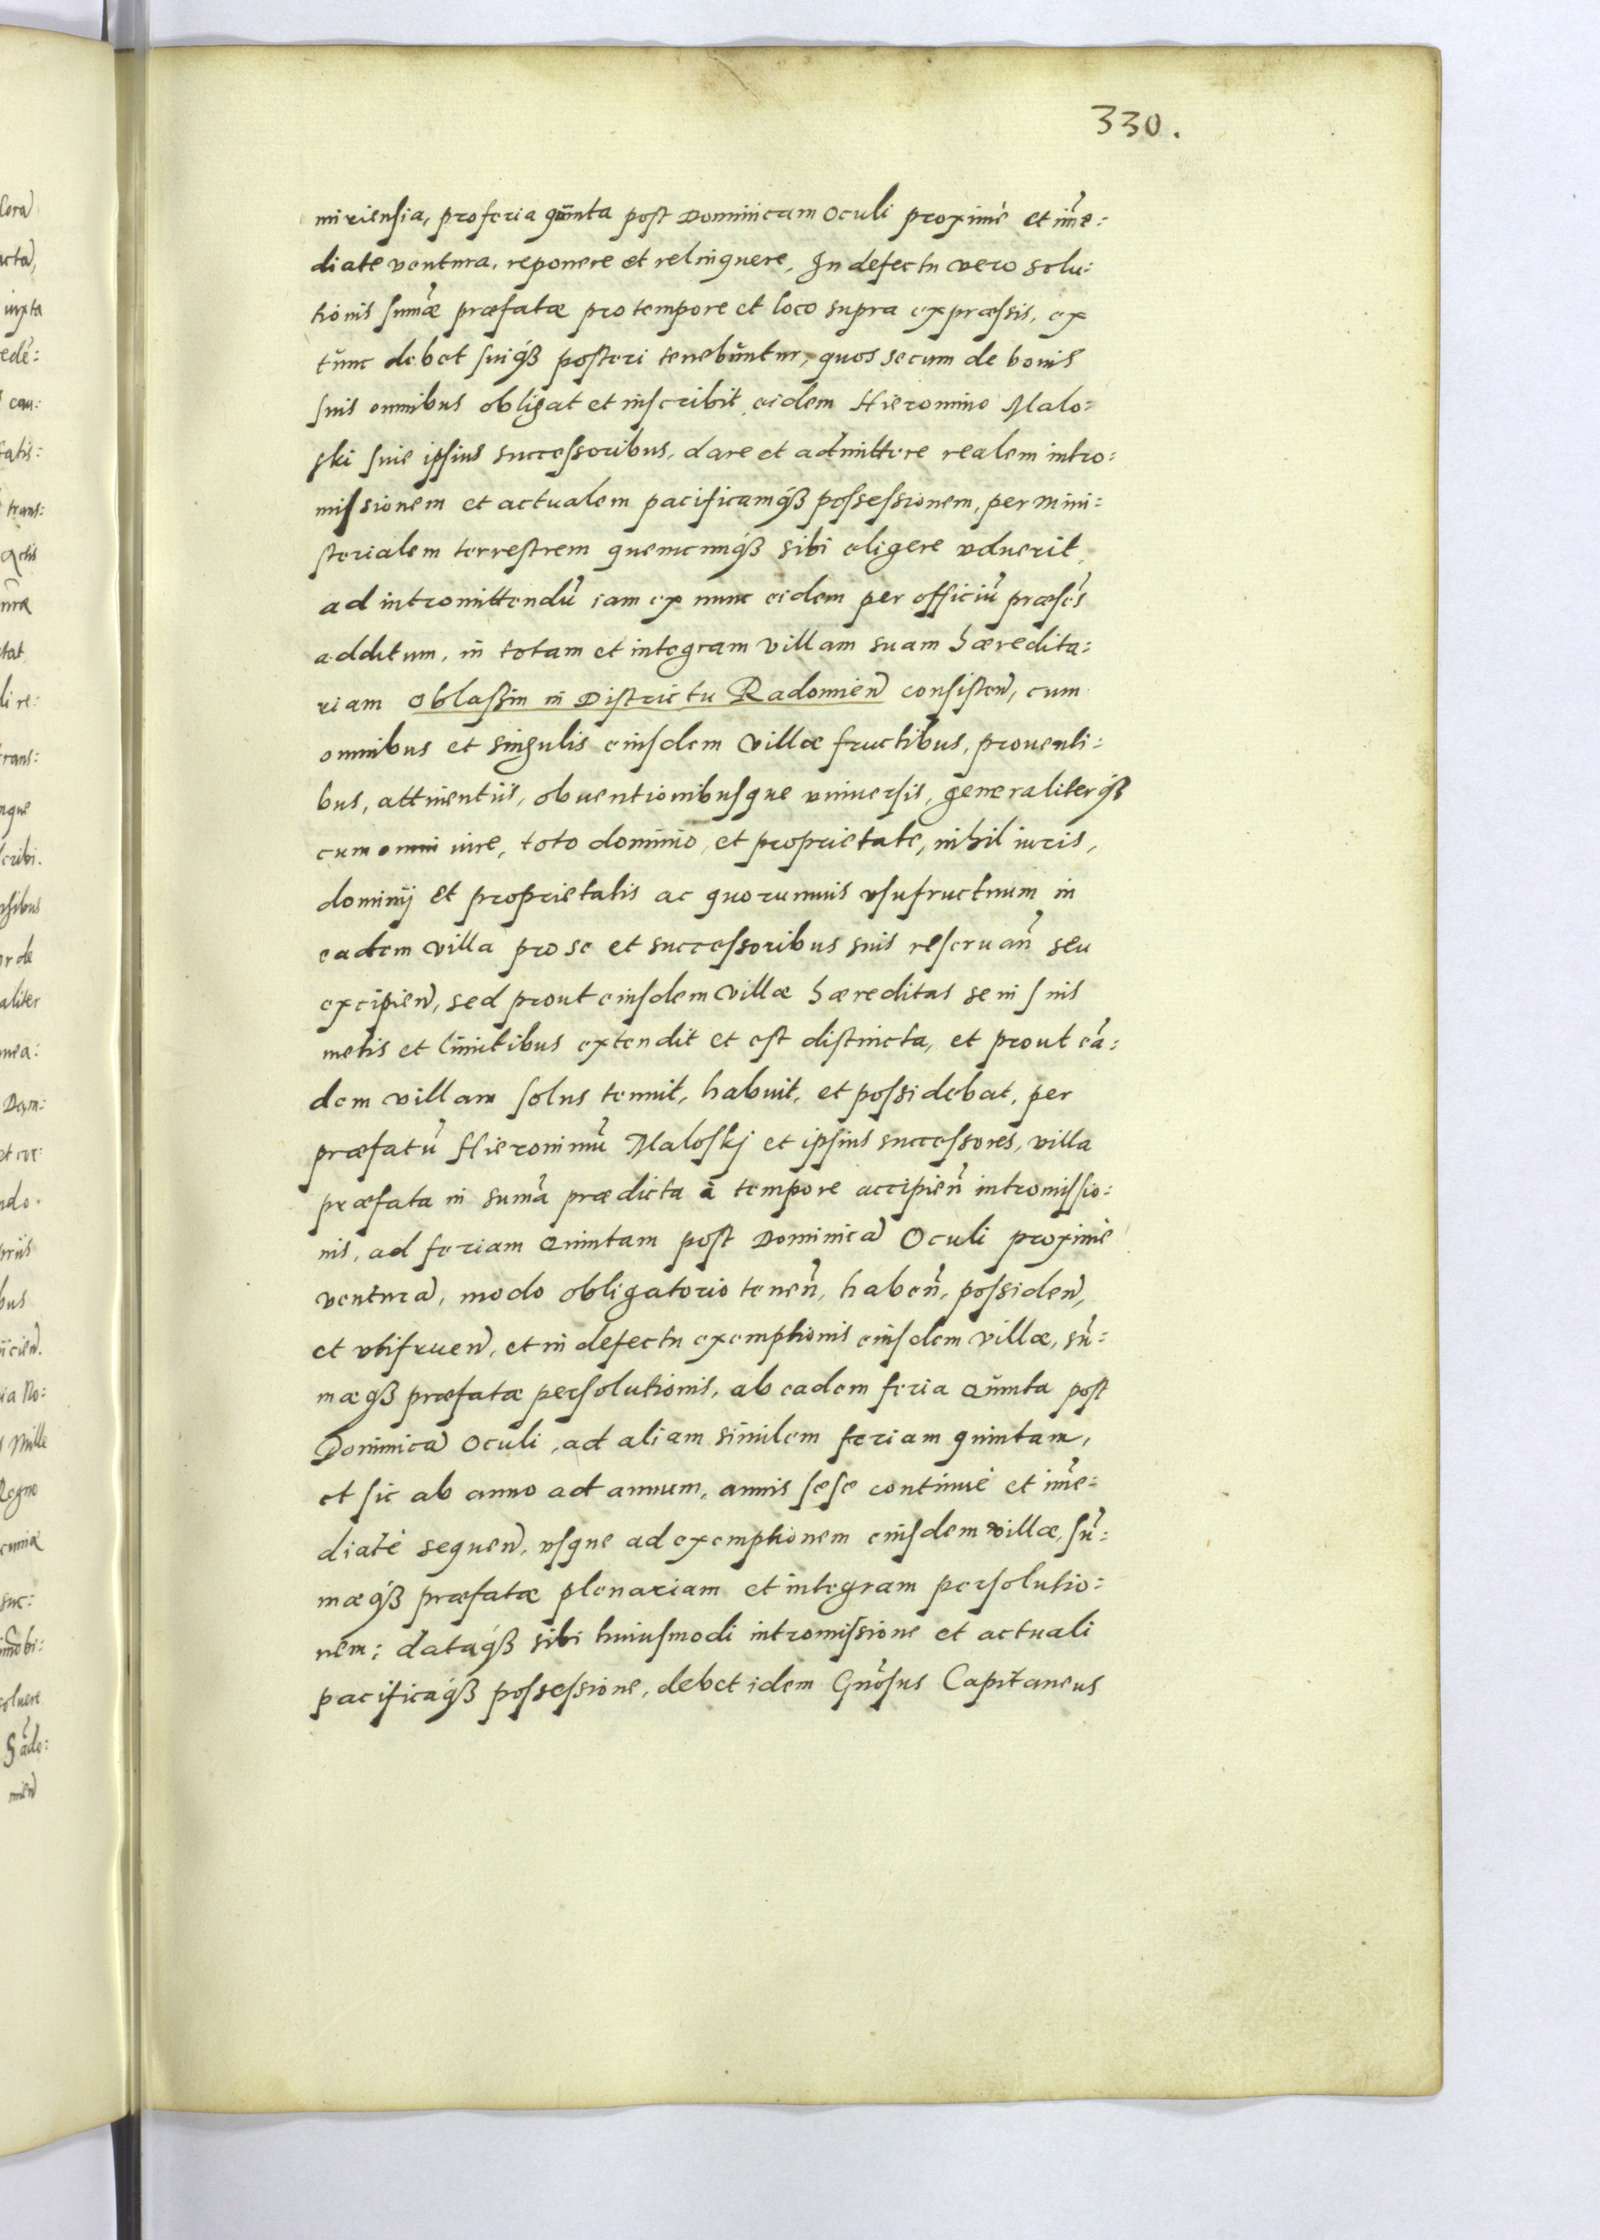 330.
miriensia, pro feria quinta post Dominicam Oculi proximè et im̃e:
diate ventura, reponere et relinquere, In defectu vero solu:
tionis sum̃æ præfatæ pro tempore et loco supra expræssis, ex
tunc debet suiqꝫ posteri tenebuntur, quos secum de bonis
suis omnibus obligat et inscribit eidem Hieronimo Malo=
ski suis ipsius successoribus, dare et admittere realem intro:
missionem et actualem pacificamqꝫ possessionem, per mini:
sterialem terrestrem quemcunqꝫ sibi eligere voluerit,
ad intromittendũ iam ex nunc eidem per officiũ præsẽs
additum, in totam et integram villam suam hæredita:
riam Oblassin in Districtu Radomieñ consisteñ, cum
omnibus et singulis eiusdem villæ fructibus, prouenti:
bus, attinentiis, obuentionibusque vniuersis, generaliterqꝫ
cum omni iure, toto dominio, et proprietate, nihil iuris,
dominij et proprietatis ac quorumuis vsufructuum in
eadem villa pro se et successoribus suis reseruañ seu
excipieñ, sed prout eiusdem villæ hæreditas se in suis
metis et limitibus extendit et est distincta, et prout eã:
dem villam solus tenuit, habuit, et possidebat, per
præfatũ Hieronimũ Maloskj et ipsius successores, villa
præfata in sum̃a prædicta à tempore accipieñ intromissio:
nis, ad feriam Quintam post Dominicã Oculi proximè
venturã, modo obligatorio teneñ, habeñ, possideñ,
et vtifrueñ, et in defectu exemptionis eiusdem villæ, sũ:
mæqꝫ præfatæ persolutionis, ab eadem feria Quinta post
Dominicã Oculi, ad aliam similem feriam quintam,
et sic ab anno ad annum, annis sese continuè et im̃e:
diatè sequeñ, vsque ad exemptionem eiusdem villæ, sũ:
mæqꝫ præfatæ plenariam et integram persolutio:
nem; dataqꝫ sibi huiusmodi intromissione et actuali
pacificaqꝫ possessione, debet idem Gñosus Capitaneus